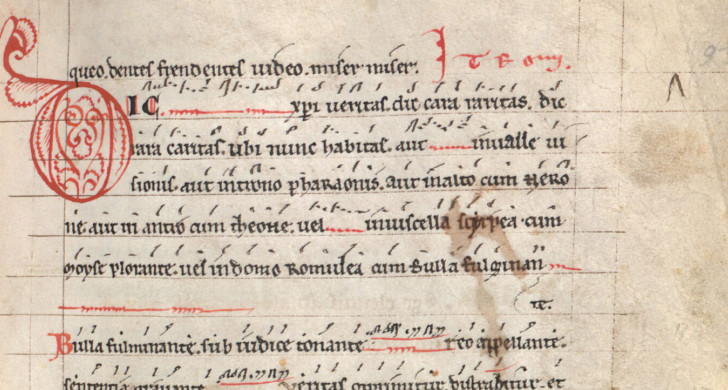 queo. dentes frendentes uideo. miser miser. I T E ỏm̃.
DIC xp̃i ueritas. dic cara raritas. dic
rara caritas. ubi nunc habitas. aut in ualle ui
sionis. aut in trono pharaonis. aut in alto cum Nero
ne. aut in antro cum theone. uel in uiscella scirpea cum
moyse plorante. uel in domo Romulea cum Bulla fulminan
te.
Bulla fulminante. sub iudice tonante reo appellante.
sententia grauante ueritas opprimitur distrahitur. et